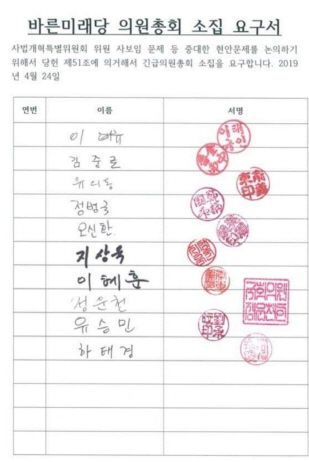 바른미래당 의원총회 소집 요구서
사법개혁특별위원회 위원 사보임 문제 등 중대한 현안문제를 논의하기
위해서 당헌 제51조에 의거해서 긴급의원총회 소집을 요구합니다. 2019
년 4월 24일
연번 이름 서명
이
김중로
유의동
정병국
오신환
지상욱
이혜훈
정운천
유승민
하태경